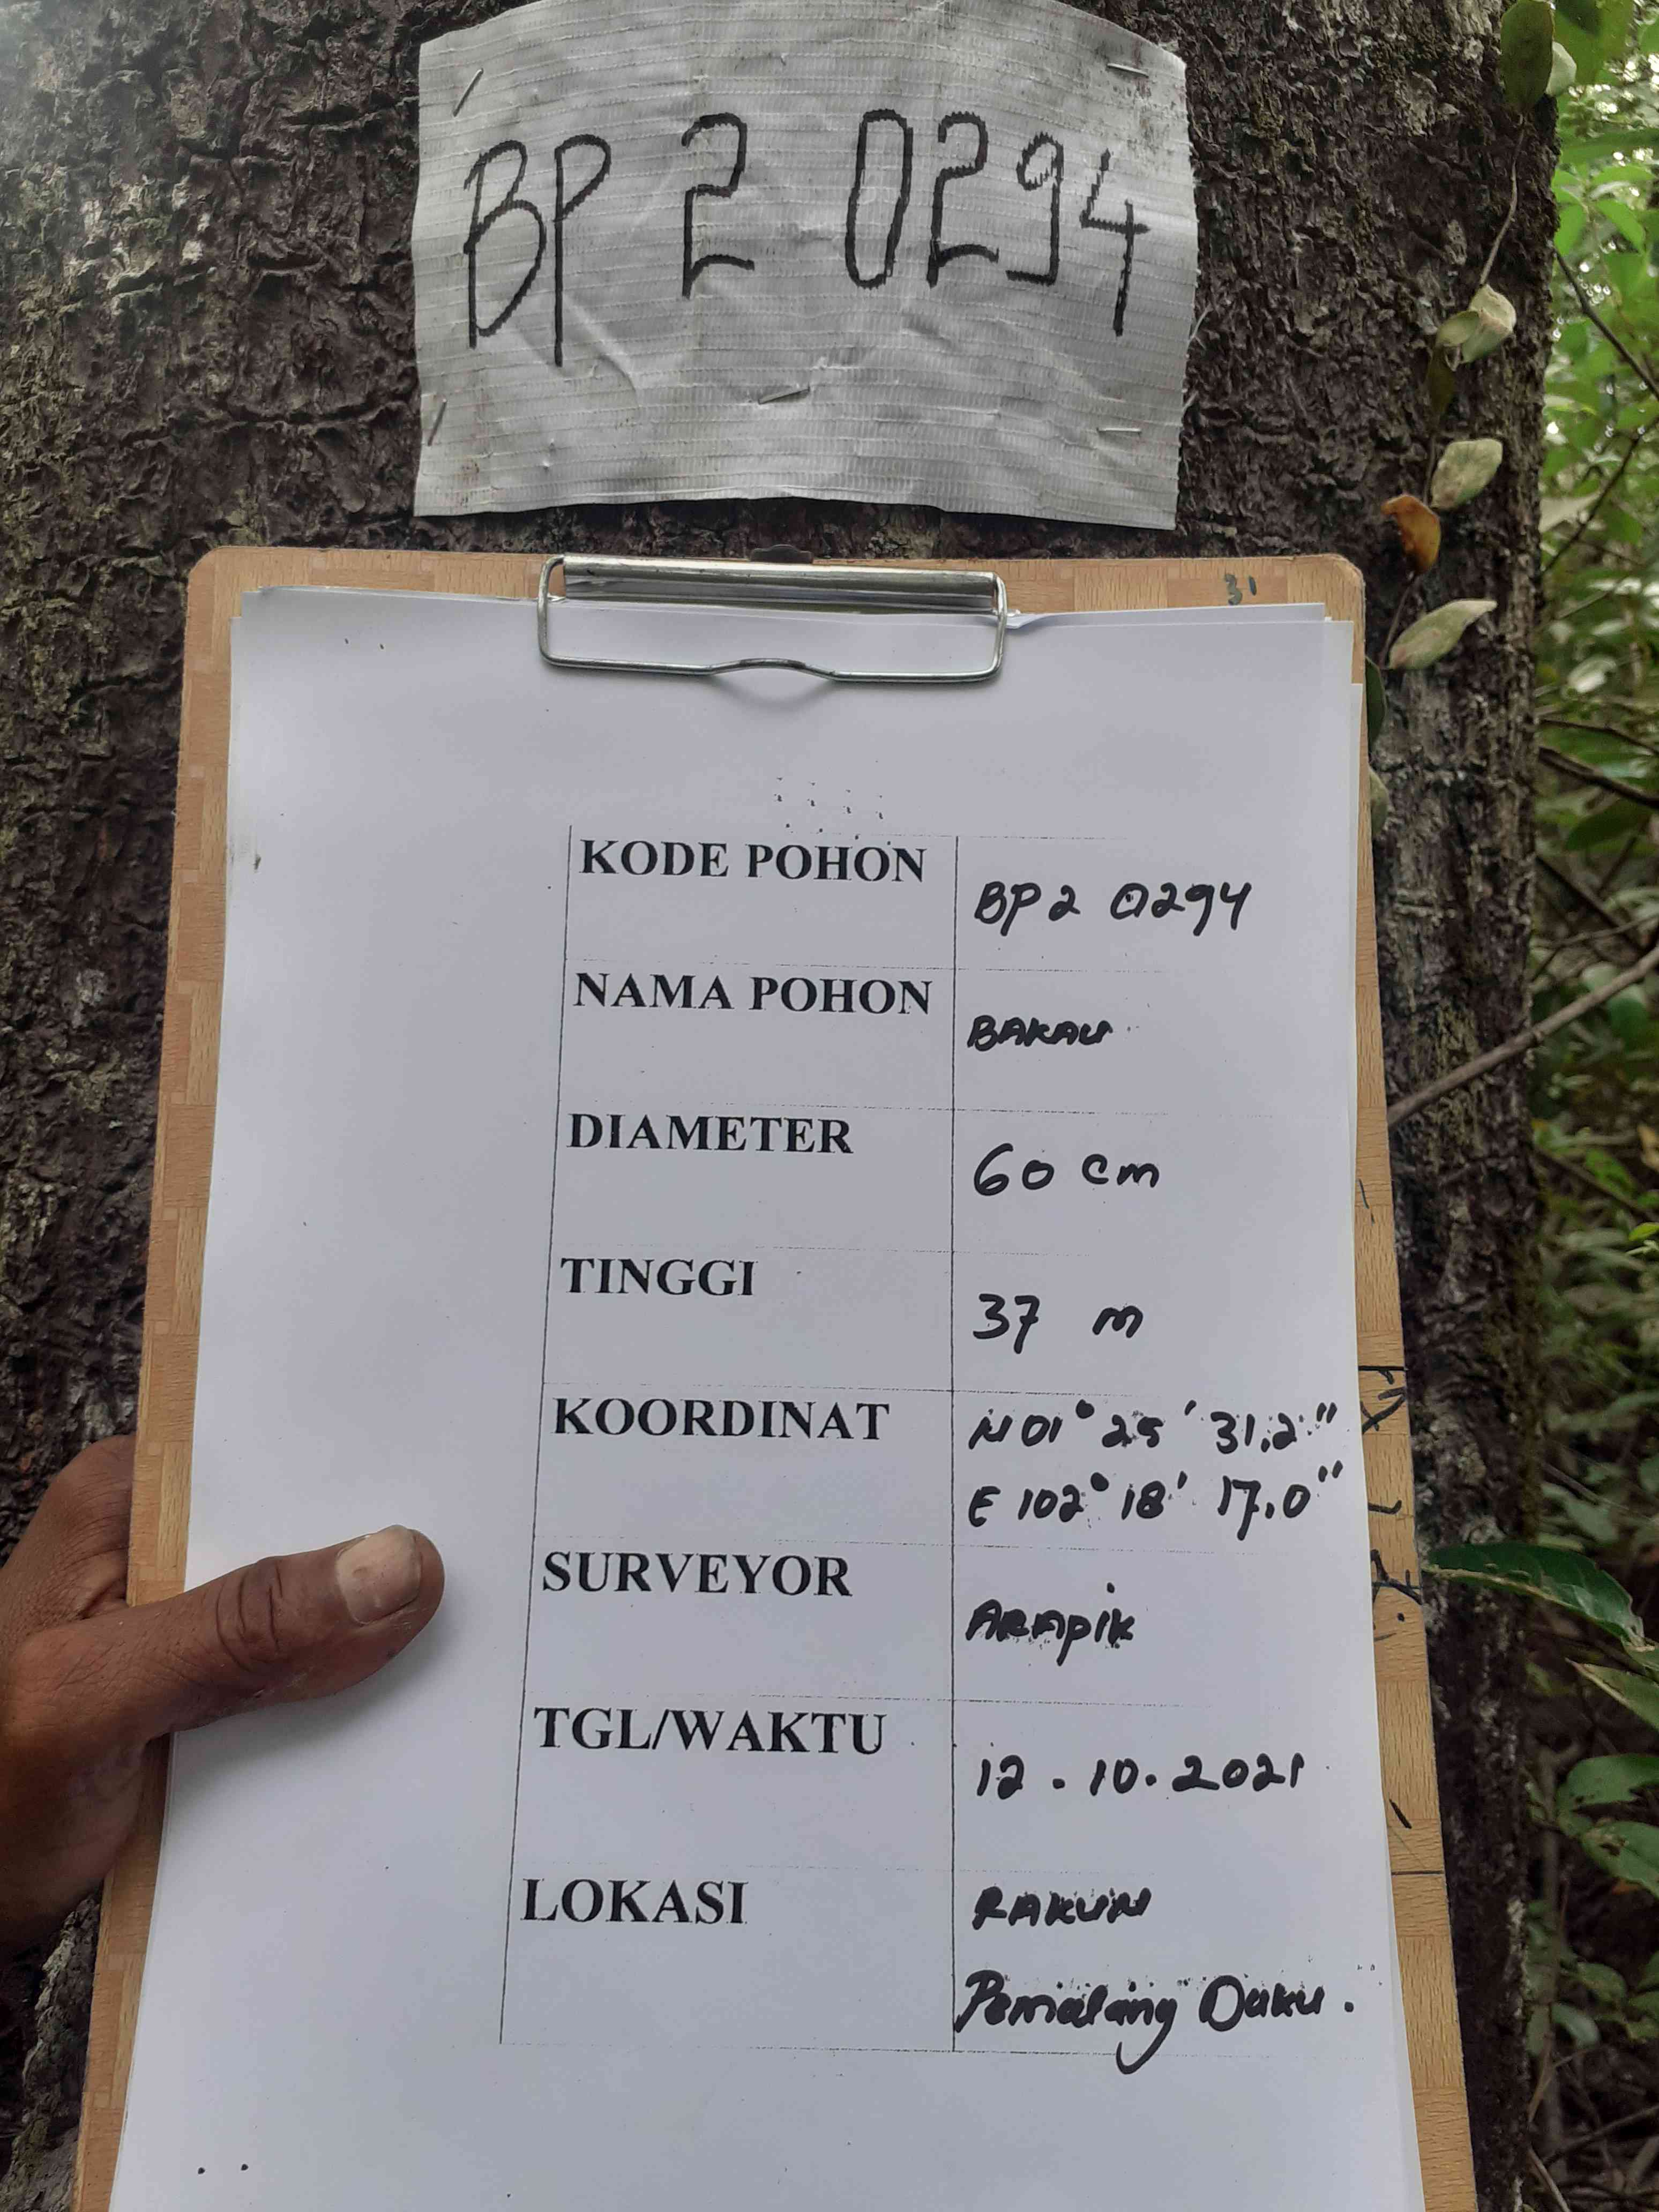 BP 2 0294
31
KODE POHON BP2 0294
NAMA POHON BAKAU
DIAMETER 60 cm
TINGGI 37 m
KOORDINAT N 01° 25' 31.2"
E 102° 18' 17.0"
SURVEYOR ARAPIK
TGL/WAKTU 12.10.2021
LOKASI RAKUN
Pematang Duku.